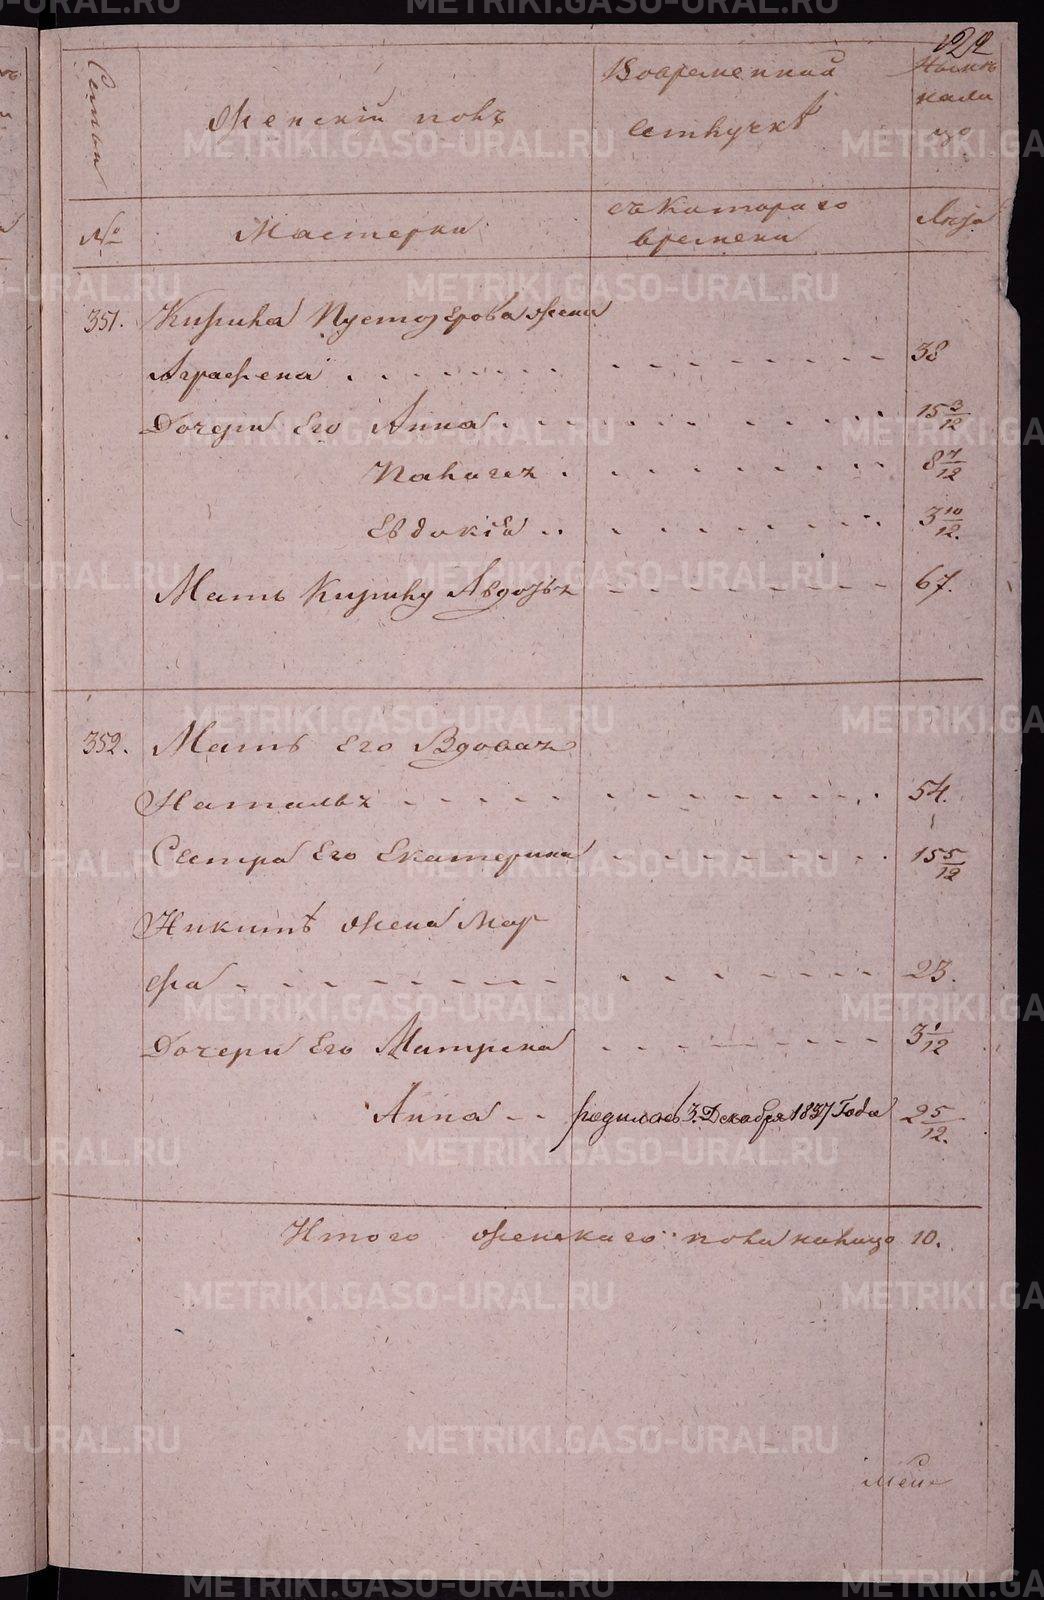 122
Семьи
Женскій полъ
Вовременной отлучкѣ
Нынѣ налицо
№
Мастерки
съ Котораго времени
Лета
351. Кирила Пустозерова жена
Аграфена 38
Дочери Его Анна 15 3/12
Палагея 8 7/12
Евдокія 3 10/12.
Мать Кирилу Авдотья 67.
352. Мать Его Вдовая
Наталья 54.
Сестра Его Екатерина 15 5/12
Никитѣ жена Мар
фа 23.
Дочери Его Матрена 3 1/12
Анна родилась 3. Декабря 1837 Года 2 5/12.
Итого женскаго пола налицо 10.
METRIKI.GASO-URAL.RU